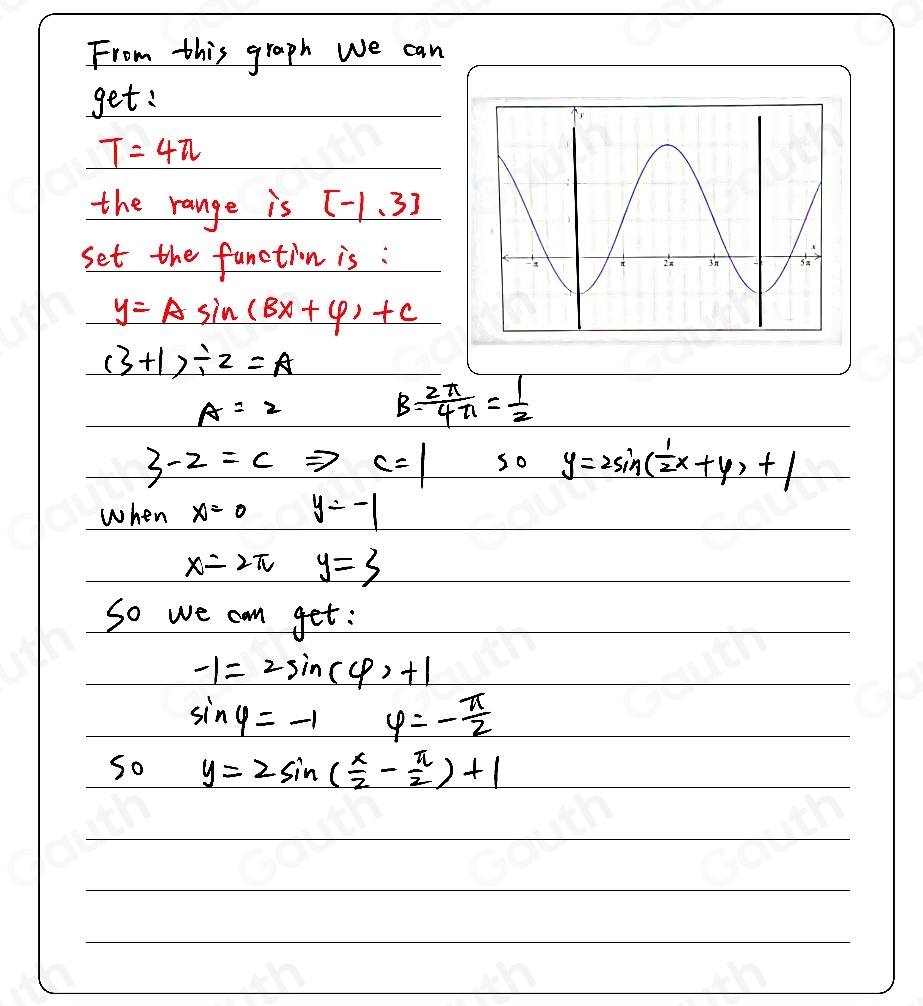 From this graph we can
get:
T = 4π
the range is [-1、3]
set the function is :
y = A sin (Bx + φ) + c
(3+1) ÷ 2 = A
A = 2    B = 2π/4π = 1/2
3-2 = c ⇒ c = 1    so y = 2sin(1/2x + φ) + 1
when x = 0    y = -1
x = 2π    y = 3
So we can get:
-1 = 2sin(φ) + 1
sinφ = -1    φ = -π/2
so    y = 2sin(x/2 - π/2) + 1
y
x
-π π 2π 3π 5π
Gauth